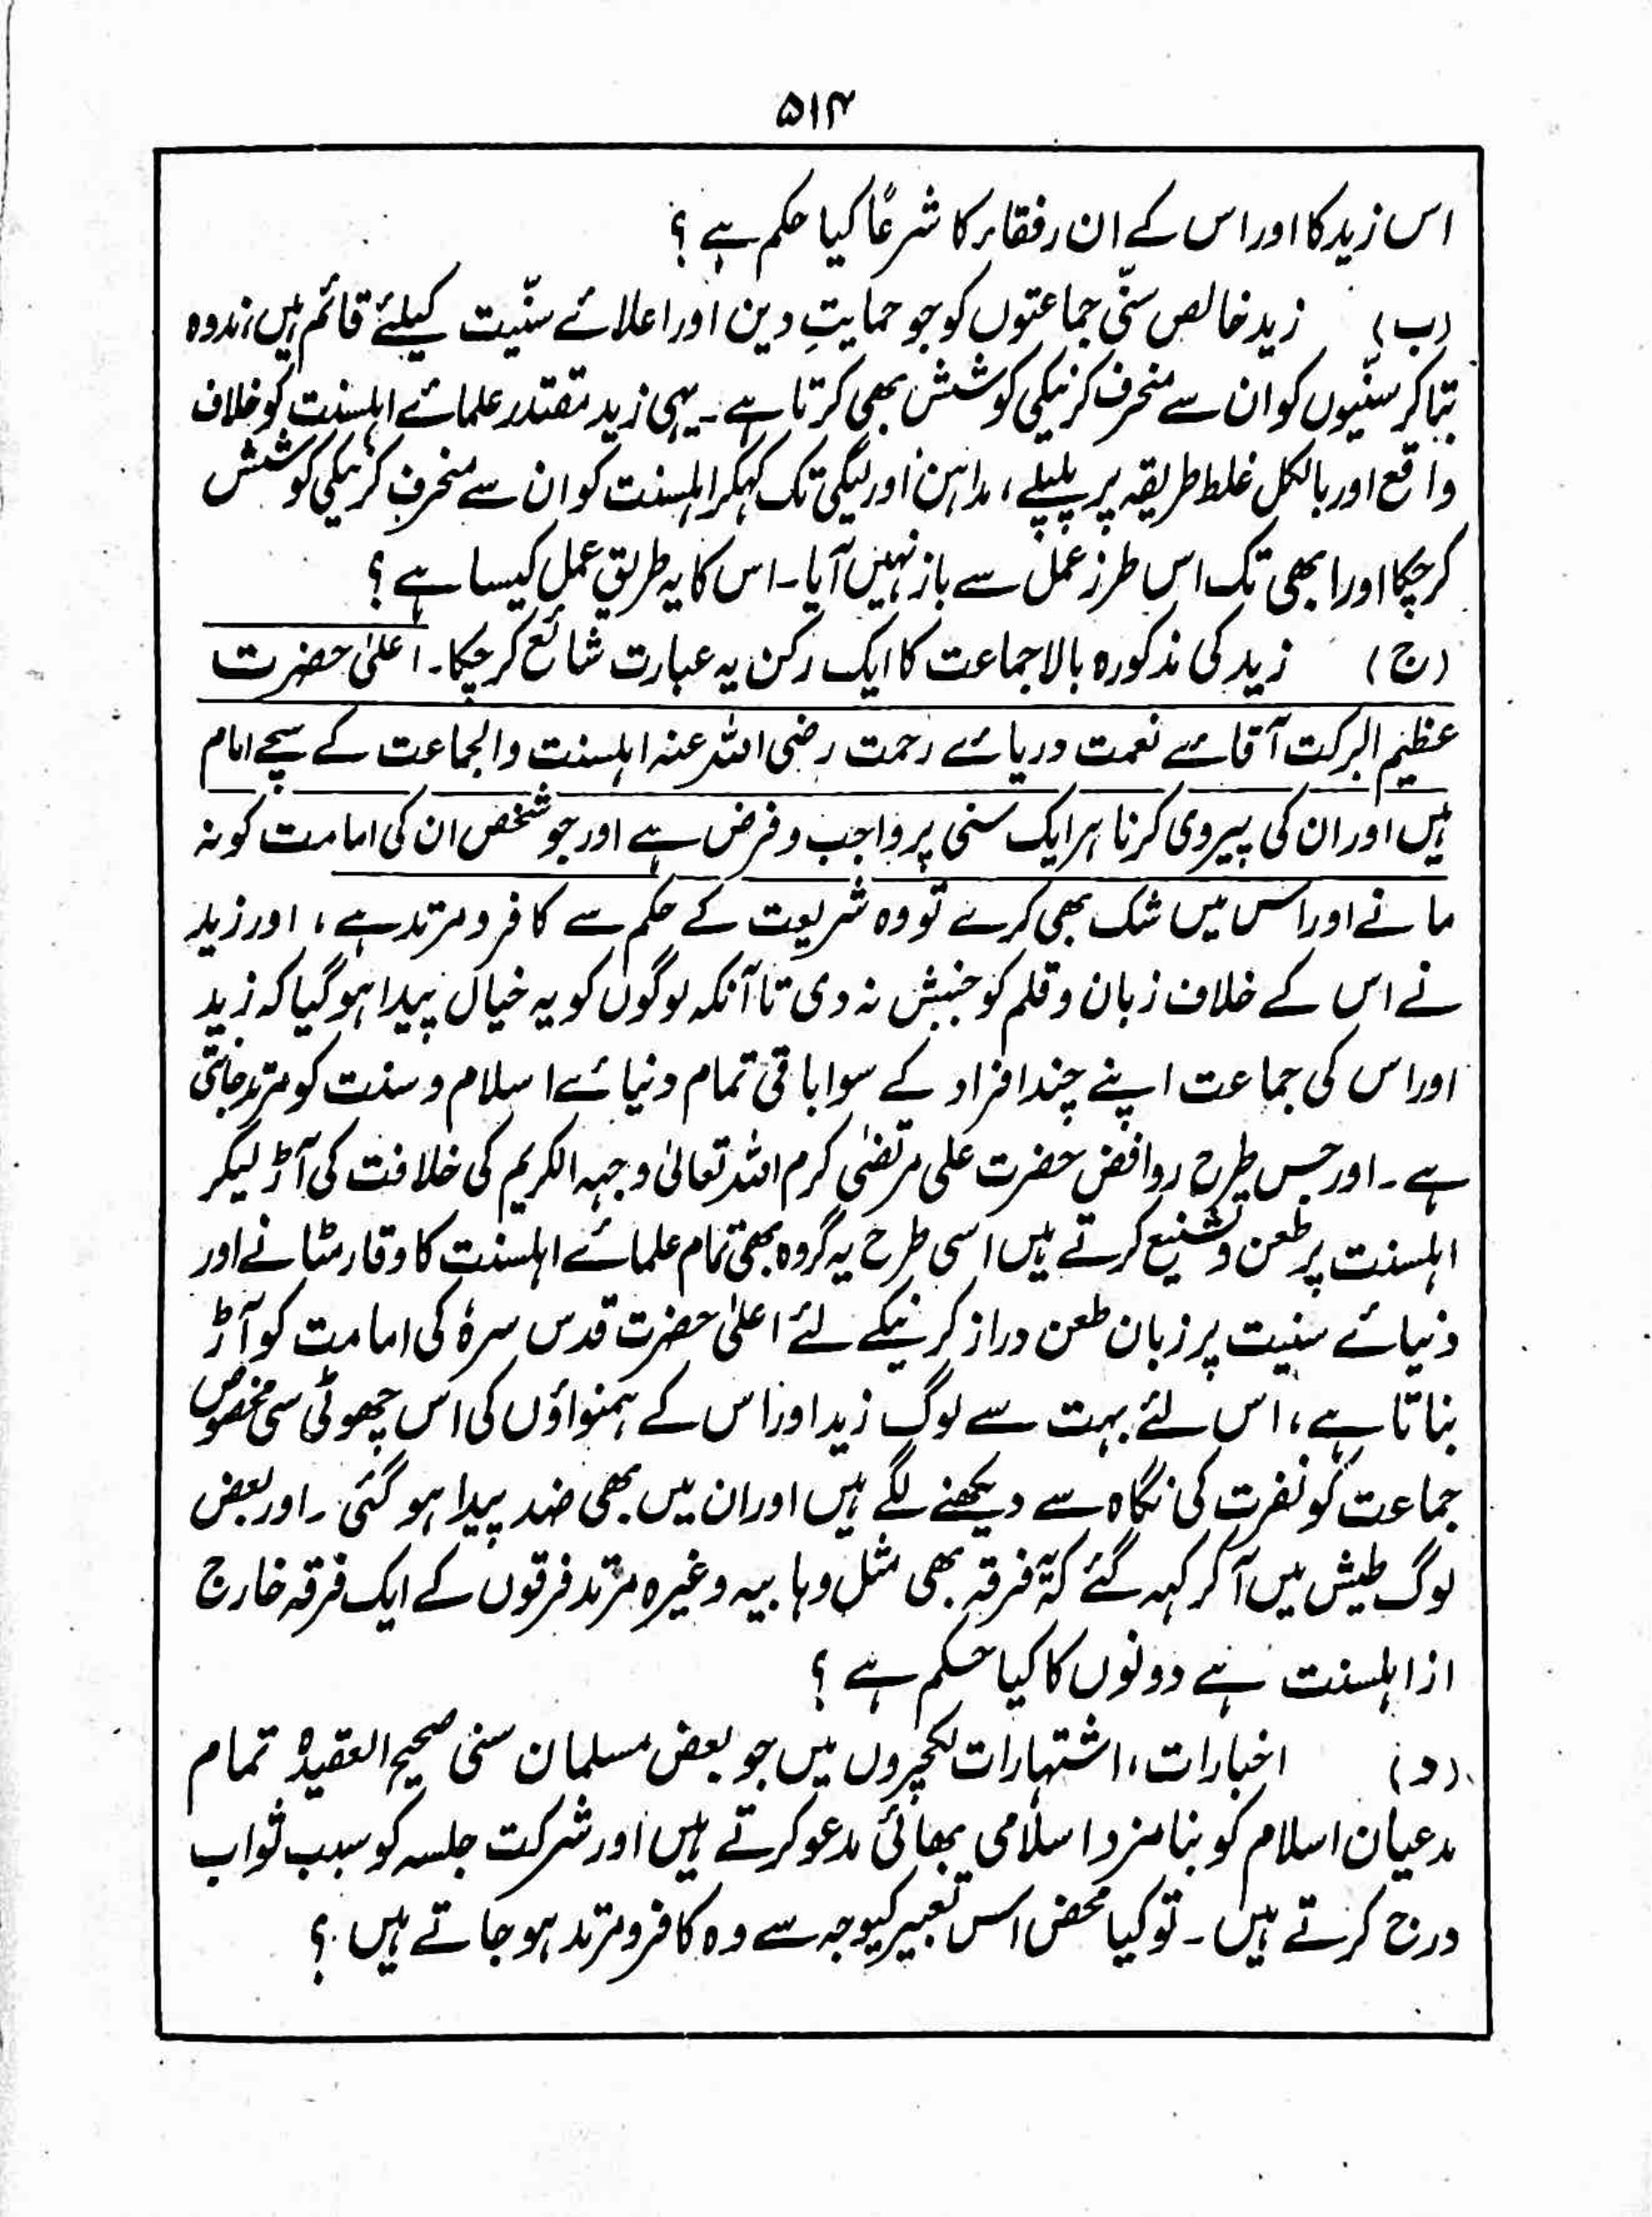 ۵۱۴
اس زید کا اور اس کے ان رفقاء کا شرعًا کیا حکم ہے ؟
(ب) زید خالص سنّی جماعتوں کو جو حمایتِ دین اور اعلائے سنّیت کیلئے قائم ہیں، ندوہ
بتا کر سنّیوں کو ان سے منحرف کرنیکی کوشش بھی کرتا ہے۔ یہی زید مقتدر علمائے اہلسنت کو خلاف
واقع اور بالکل غلط طریقہ پر پلپلے، مداہن اور لیگی تک کہکر اہلسنت کو ان سے منحرف کرنیکی کوشش
کر چکا اور ابھی تک اس طرز عمل سے باز نہیں آیا۔ اس کا یہ طریق عمل کیسا ہے ؟
(ج) زید کی مذکورہ بالا جماعت کا ایک رکن یہ عبارت شائع کر چکا۔ اعلیٰ حضرت
عظیم البرکت آقائے نعمت دریائے رحمت رضی اللہ عنہ اہلسنت والجماعت کے سچے امام
ہیں اور ان کی پیروی کرنا ہر ایک سنی پر واجب و فرض ہے اور جو شخص ان کی امامت کو نہ
مانے اور اس میں شک بھی کرے تو وہ شریعت کے حکم سے کافر و مرتد ہے، اور زید
نے اس کے خلاف زبان و قلم کو جنبش نہ دی تا آنکہ لوگوں کو یہ خیال پیدا ہو گیا کہ زید
اور اس کی جماعت اپنے چند افراد کے سوا باقی تمام دنیائے اسلام و سنت کو مرتد جانتی
ہے۔ اور جس طرح روافض حضرت علی مرتضیٰ کرم اللہ تعالیٰ وجہہ الکریم کی خلافت کی آڑ لیکر
اہلسنت پر طعن و تشنیع کرتے ہیں اسی طرح یہ گروہ بھی تمام علمائے اہلسنت کا وقار مٹانے اور
دنیائے سنیت پر زبان طعن دراز کرنیکے لئے اعلیٰ حضرت قدس سرہٗ کی امامت کو آڑ
بناتا ہے، اس لئے بہت سے لوگ زید اور اس کے ہمنواؤں کی اس چھوٹی سی مخصوص
جماعت کو نفرت کی نگاہ سے دیکھنے لگے ہیں اور ان میں بھی ضد پیدا ہو گئی۔ اور بعض
لوگ طیش میں آ کر کہہ گئے کہ یہ فرقہ بھی مثل وہابیہ وغیرہ مرتد فرقوں کے ایک فرقہ خارج
از اہلسنت ہے دونوں کا کیا حکم ہے ؟
(د) اخبارات، اشتہارات لکچروں میں جو بعض مسلمان سنی صحیح العقیدہ تمام
مدعیان اسلام کو بنامزد اسلامی بھائی مدعو کرتے ہیں اور شرکت جلسہ کو سبب ثواب
درج کرتے ہیں۔ تو کیا محض اس تعبیر کیوجہ سے وہ کافر و مرتد ہو جاتے ہیں ؟